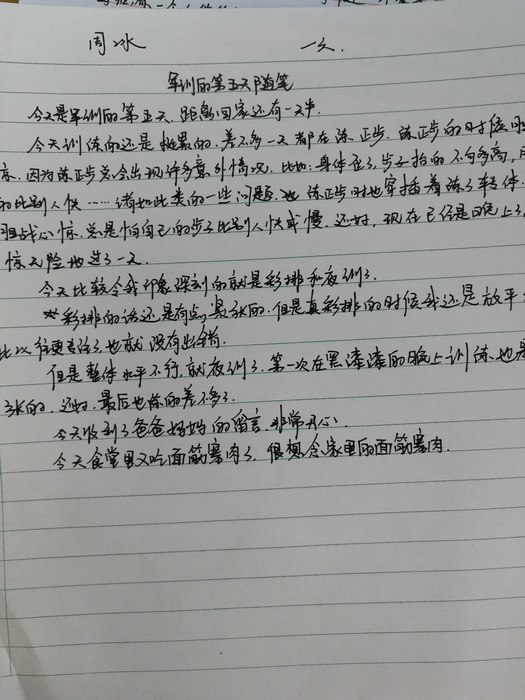 周冰
军训的第五天随笔
今天是军训的第五天,距离回家还有一天半。
今天训练的还是挺累的,差不多一天都在练正步,练正步的时候
因为练正步总会出现许多意外情况,比如:身体歪了,步子抬的不够高,
的比别人快……诸如此类的一些问题。练正步时也穿插着练了转体
胆战心惊,总是怕自己的步子比别人快或慢,还好,现在已经是晚上了,
惊无险地过了一天。
今天比较令我印象深刻的就是彩排和夜训了。
彩排的话还是有点紧张的,但是真彩排的时候我还是放平
比以往更专注了,也就没有出错。
但是整体水平不行,就夜训了,第一次在黑漆漆的晚上训练,也是
张的,还好,最后也练的差不多了。
今天收到了爸爸妈妈的留言,非常开心。
今天食堂里又吃面筋塞肉了,很想念家里的面筋塞肉。